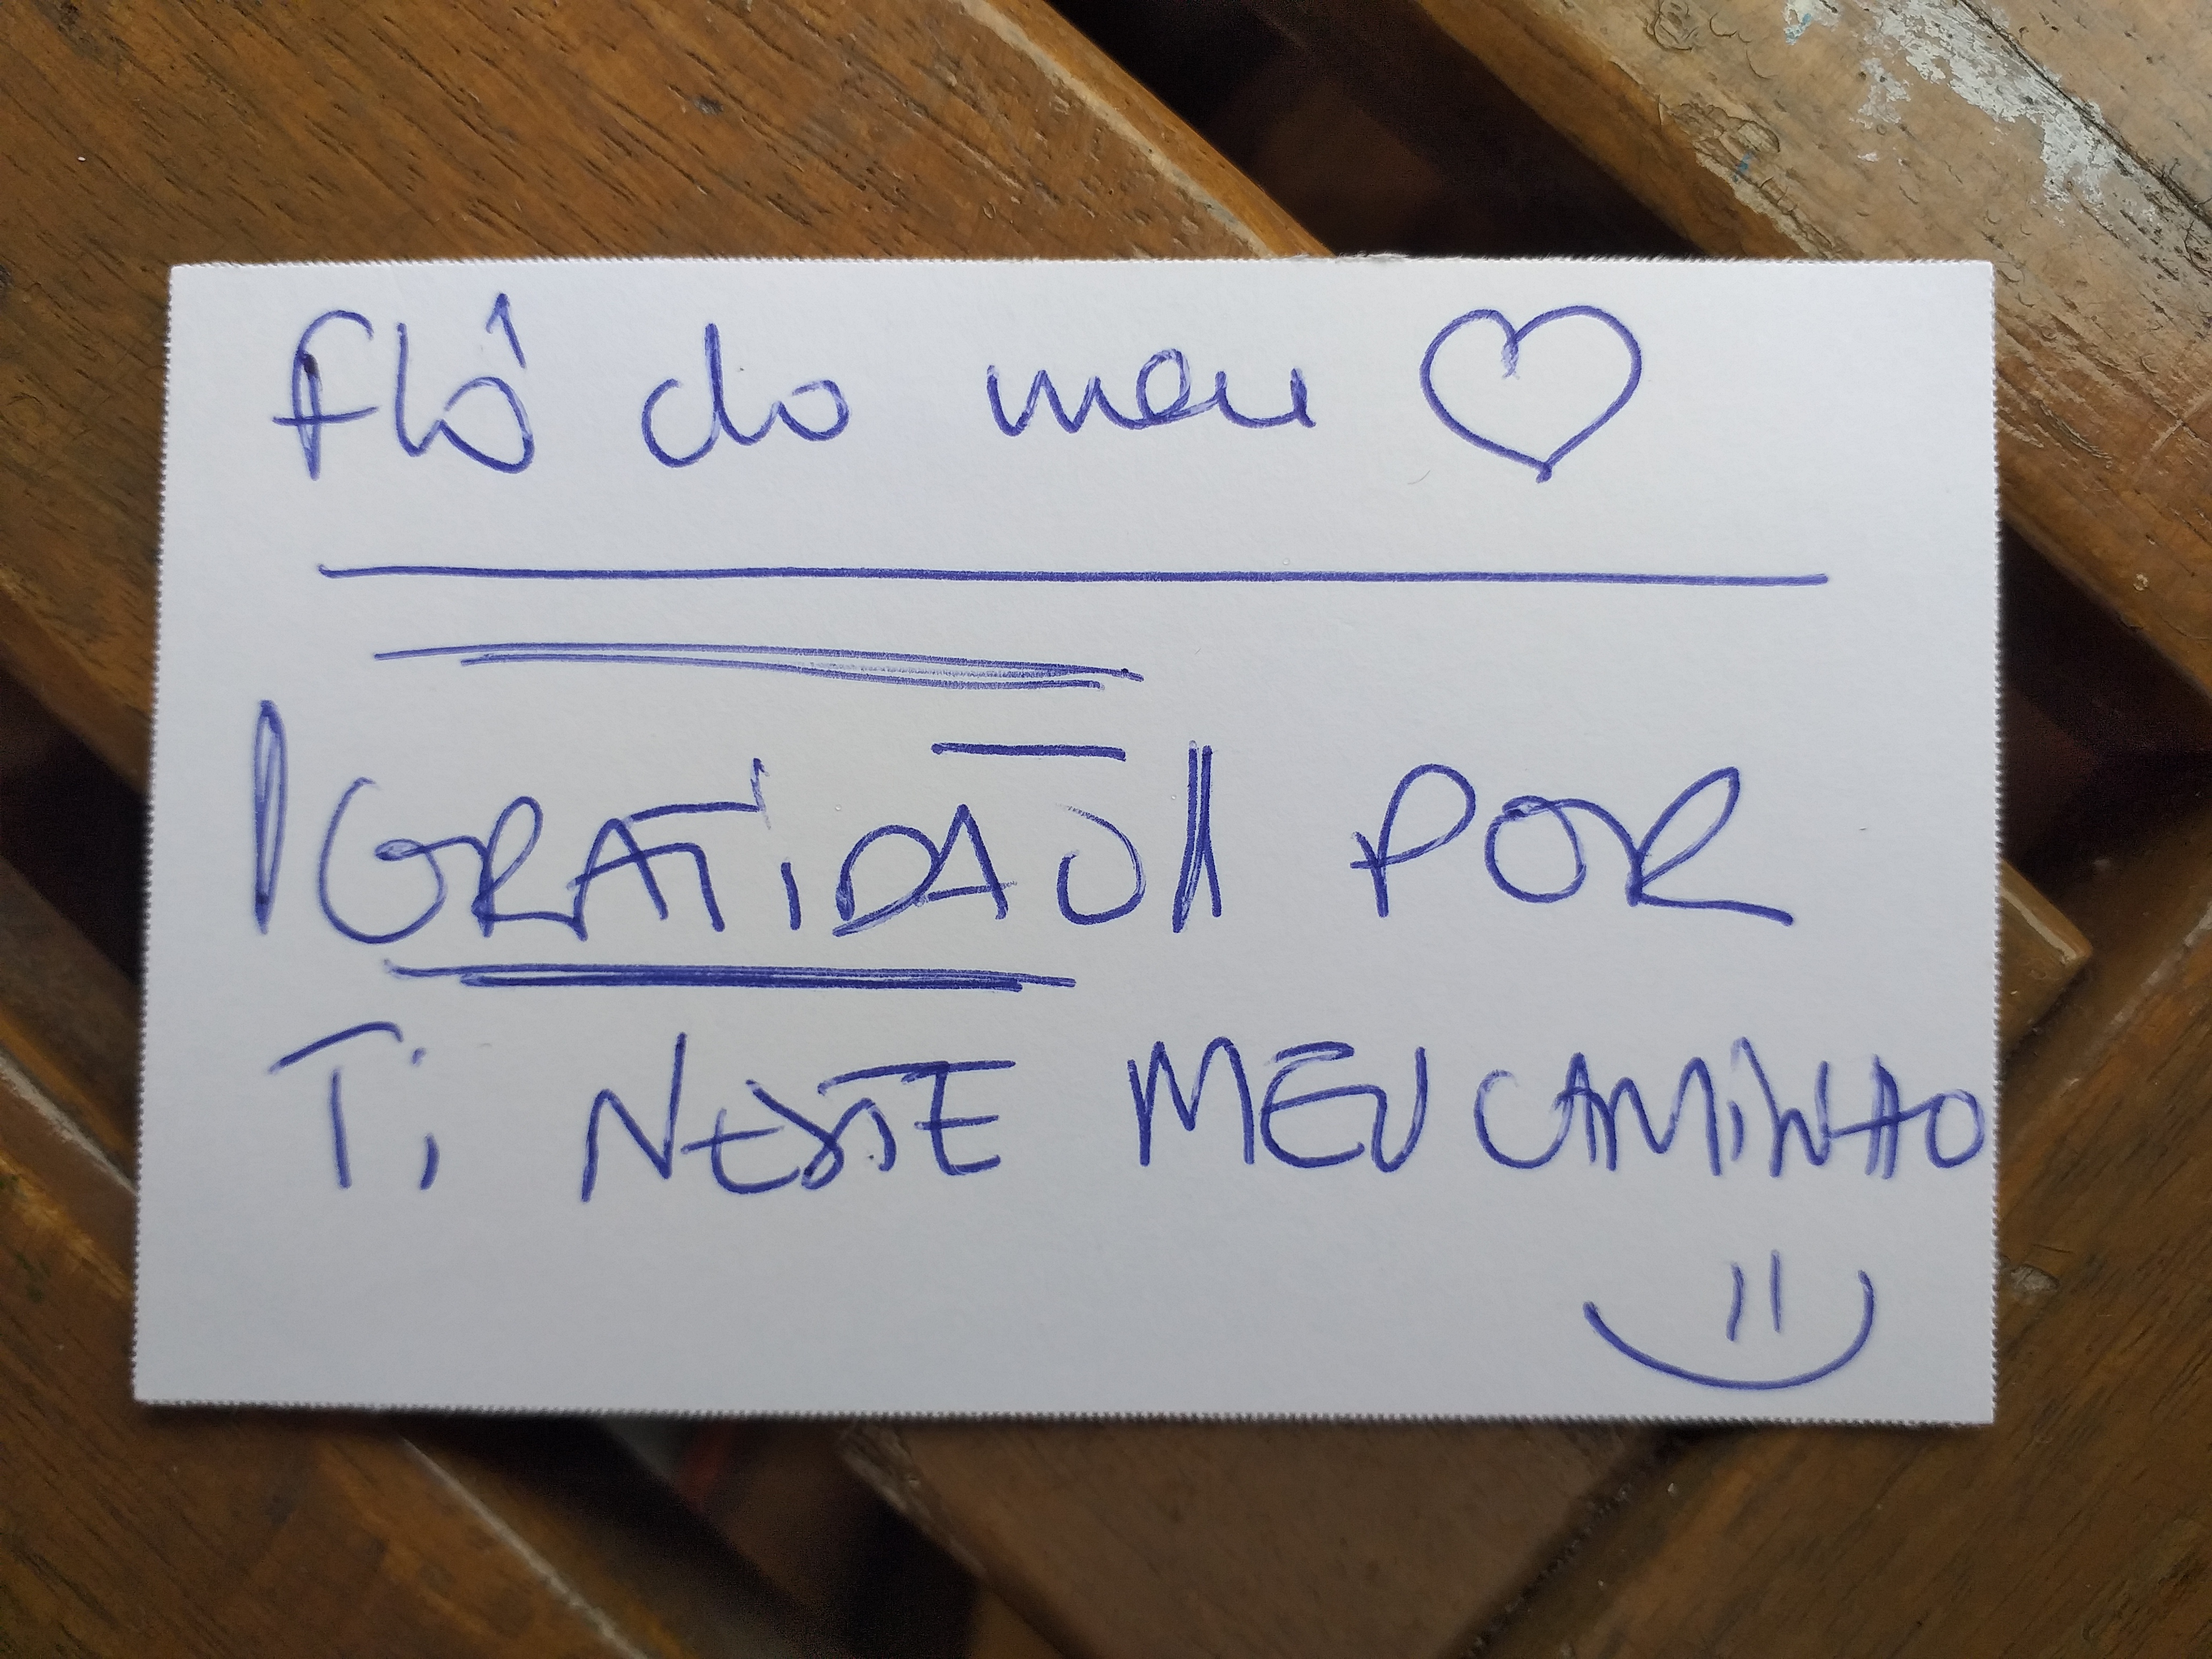 Flô do meu ♡
GRATIDÃO POR
Ti NESTE MEU CAMiNHO